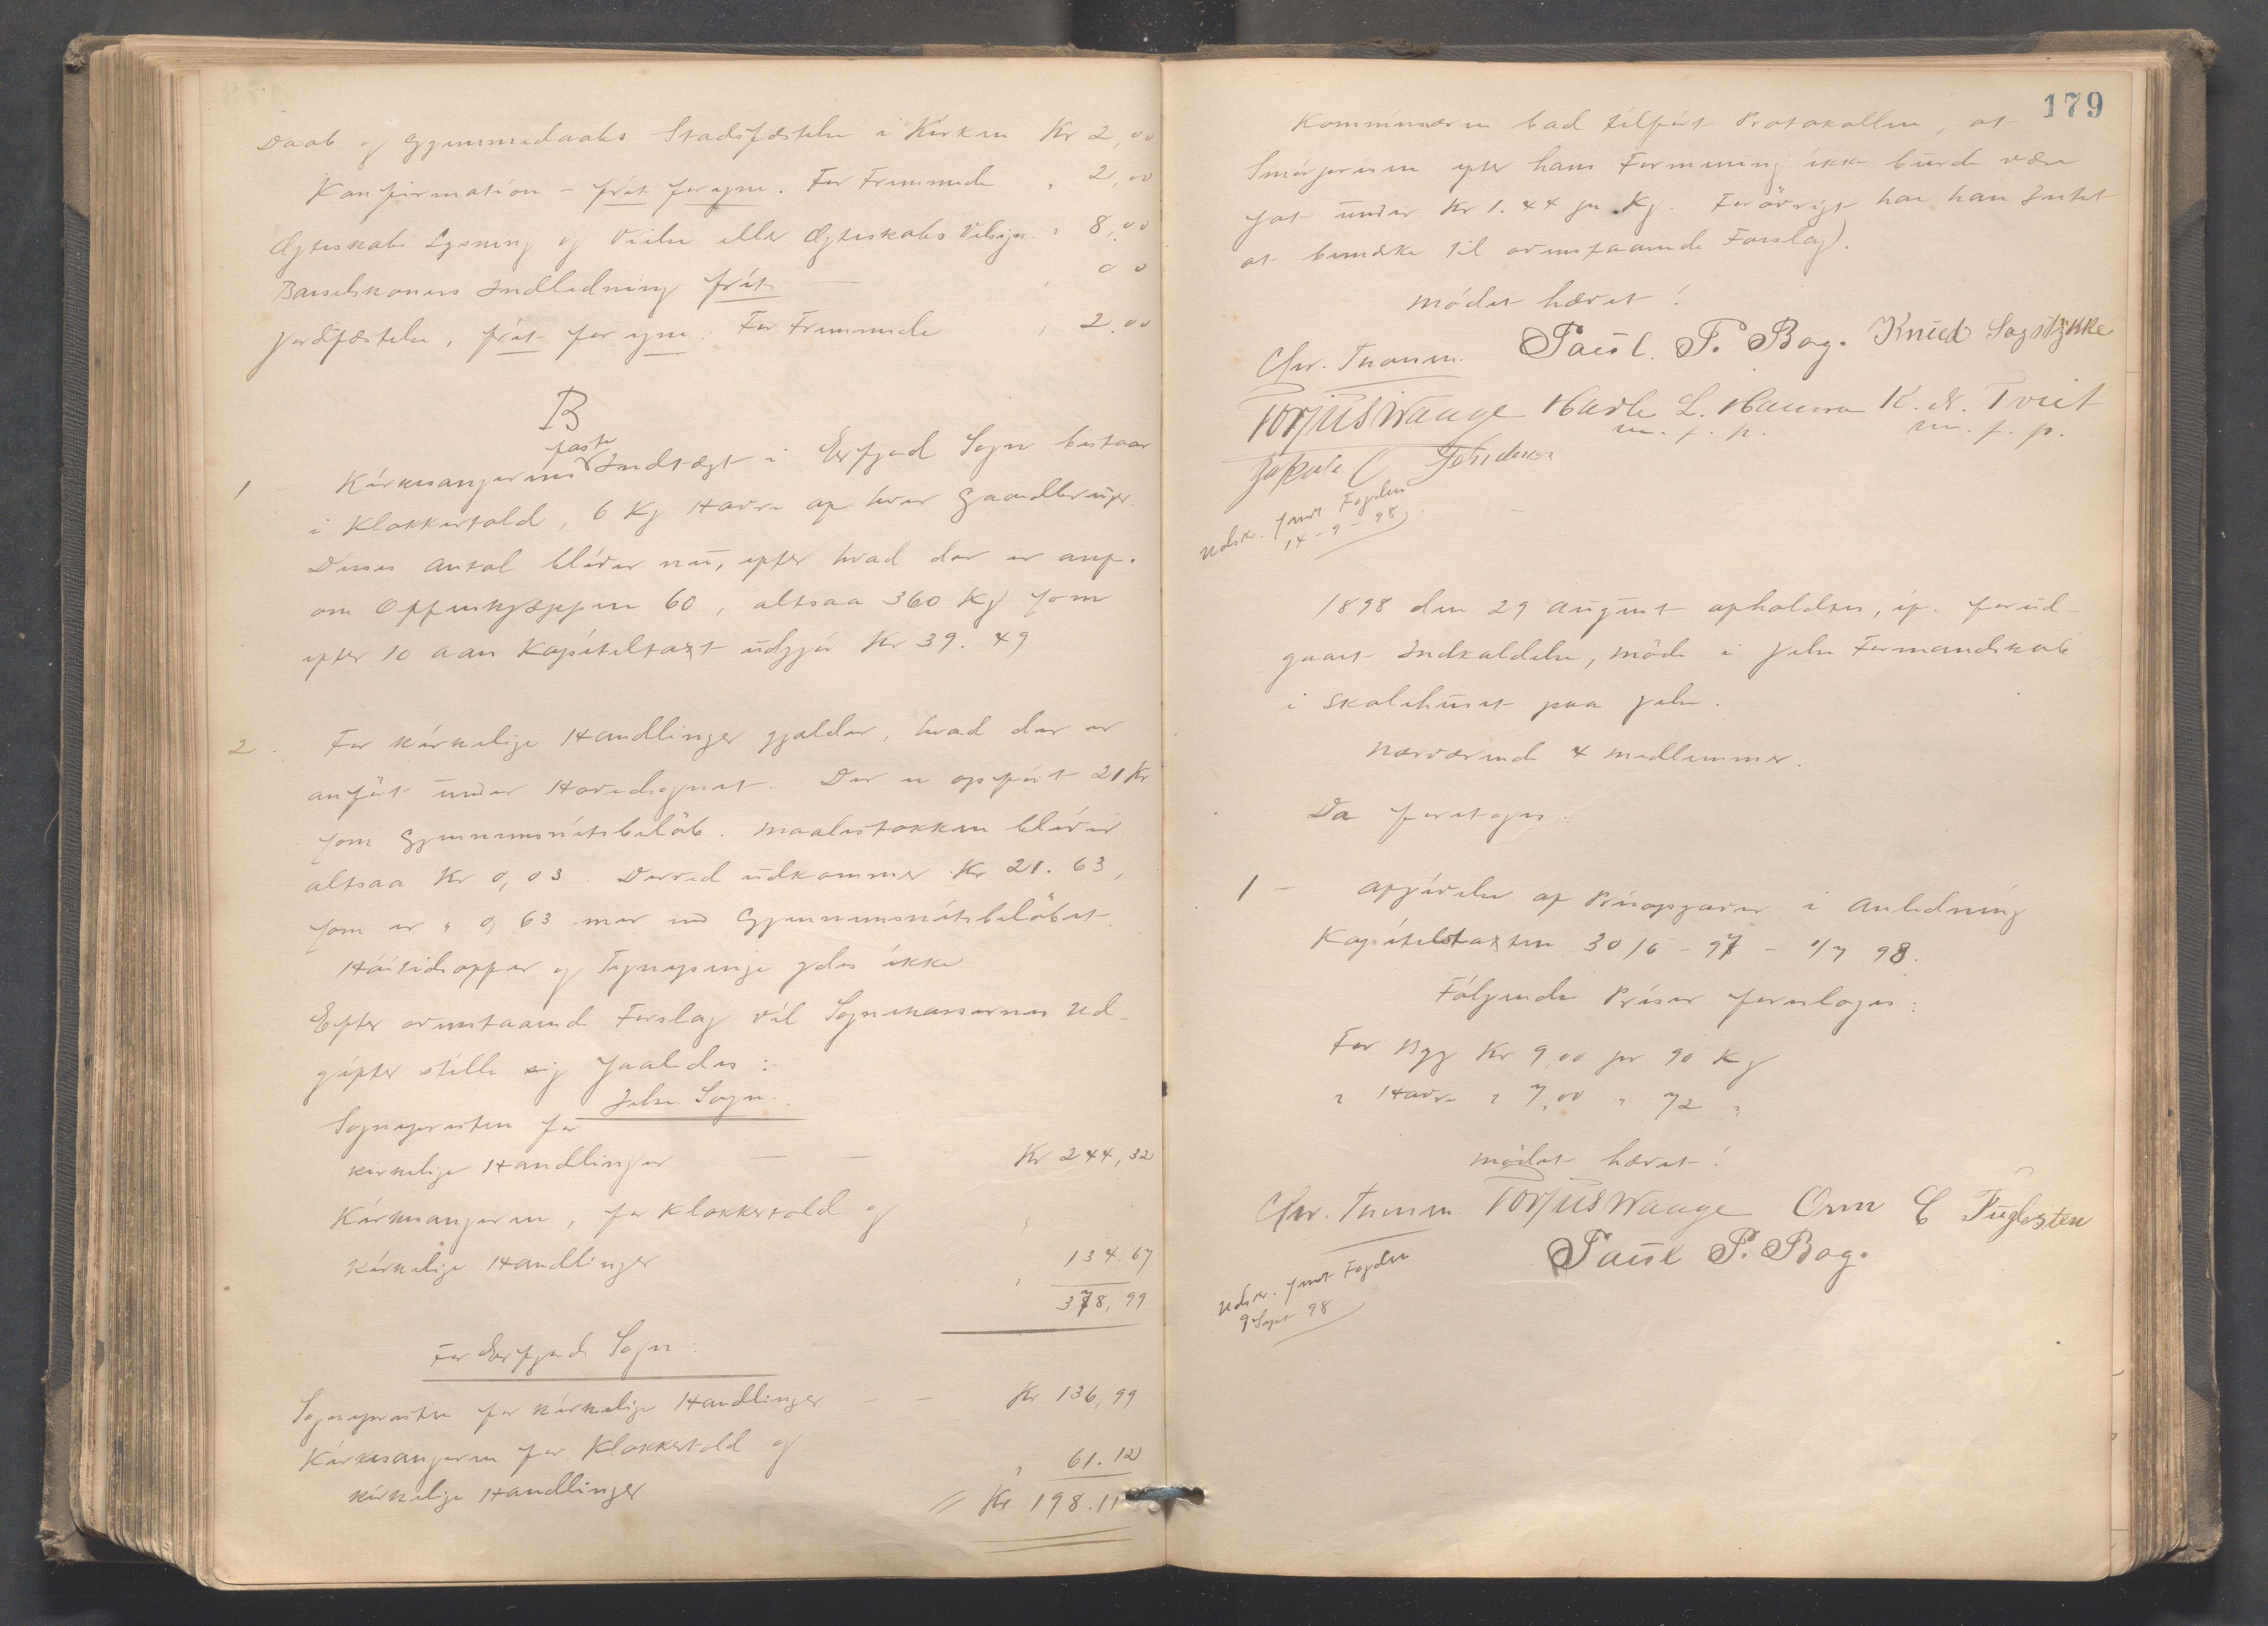 Daab og Hjemmedaabs Stadfæstelse i Kirken Kr 2,00
Konfirmation - frit for egne. For Fremmede " 2,00
Ægteskabs Lysning og Vielse eller Ægteskabs Velsign. " 8,00
Barselkoners Indledning frit — " 00
Jordfæstelse, frit for egne. For Fremmede " 2.00
B
faste
1 Kirkesangerens Indtægt i Erfjord Sogn bestaar
i Klokkertold, 6 Kg Havre af hver Gaardbruger.
Disses Antal bliver nu, efter hvad der er anf.
om 60, altsaa 360 Kg som
efter 10 aars Kapiteltaxt udgjør Kr 39.49
2. For kirkelige Handlinger gjælder, hvad der er
anført under Hovedsognet. Der er opført 21 Kr
som Gjennemsnitsbeløb. Maalestokken bliver
altsaa Kr 0,03. Derved udkommer Kr 21.63,
som er " 0,63 mer end Gjennemsnitsbeløbet.
Høitidsoffer og ydes ikke
Efter ovenstaaende Forslag vil Sognekassernes Ud-
gifter stille sig saaledes:
Jelse Sogn.
Sognepresten for
kirkelige Handlinger — — Kr 244,32
Kirkesangeren, for Klokkertold og
kirkelige Handlinger " 134.67
378,99
For Erfjord Sogn:
Sognepresten for kirkelige Handlinger — — Kr 136,99
Kirkesangeren for Klokkertold og
kirkelige Handlinger " 61.12
Kr 198.11
179
Kommissæren bad tilført Protokollen, at
Smørprisen efter hans Formening ikke burde være
sat under Kr 1.44 pr Kg. Forøvrigt har han Intet
at bemærke til ovenstaaende Forslag.
Mødet hævet!
Chr. Poul. P. Bog. Knud Sagstykke
Torjus Waage L. K. N. Tveit
m. f. p. m. f. p.
Udskr. sendt Fogden
14-9-98
1898 den 29 August afholdtes, if. forud-
gaaet Indkaldelse, møde i Jelse Formandskab
i Skolehuset paa Jelse.
Nærværende 4 medlemmer.
Da foretoges:
1 - Afgivelse af Prisopgaver i Anledning
Kapiteltaxten 30/6 - 97 - 1/7 98.
Følgende Priser foresloges:
For Byg Kr 9,00 pr 90 Kg
" Havre " 7,00 " 72 "
Mødet hævet!
Chr. Torjus Waage Orm E Fuglesten
Poul P. Bog.
Udskr. sendt Fogden
9 Sept 98